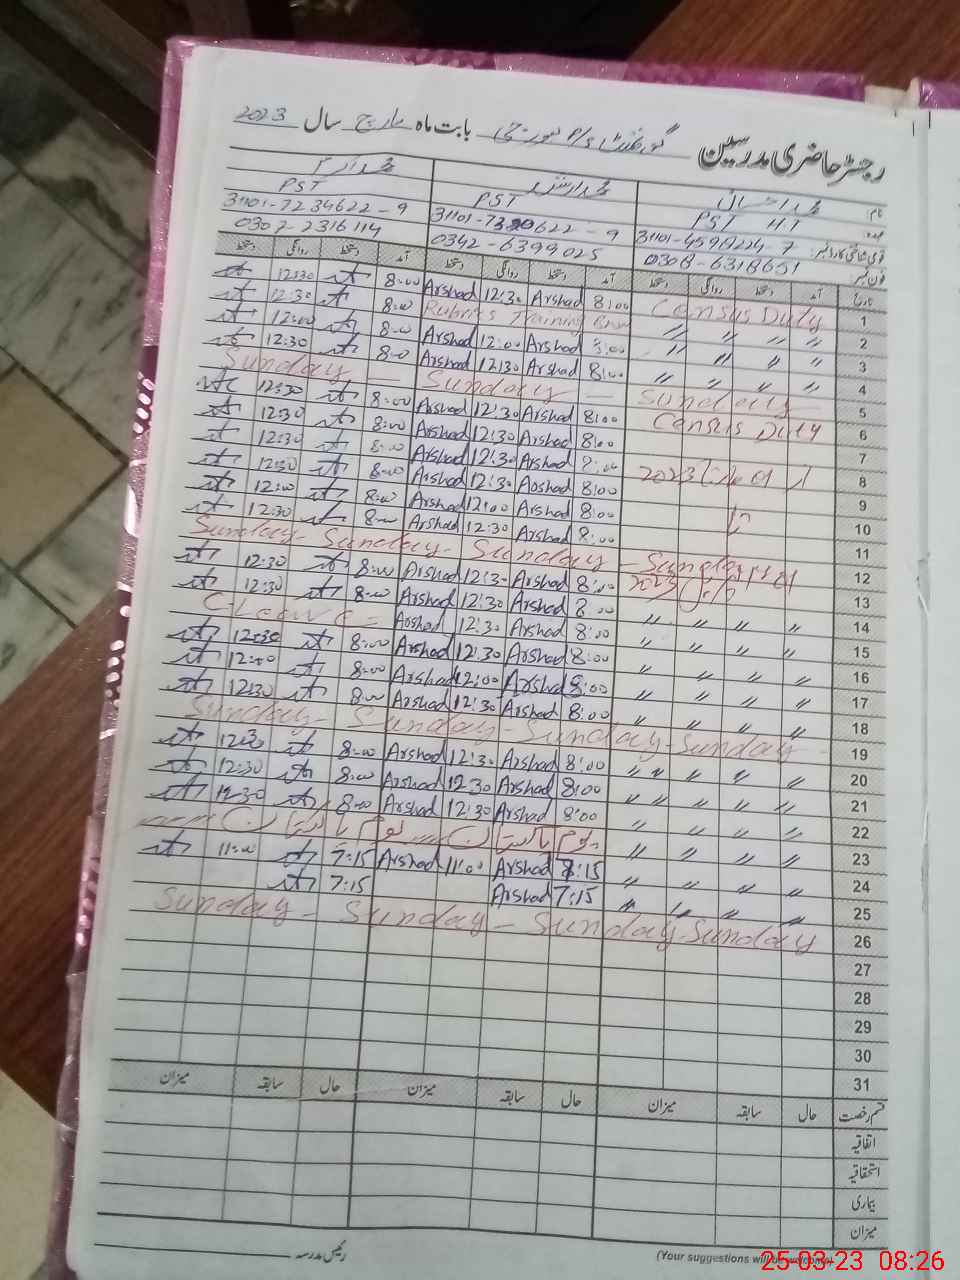 رجسٹر حاضری مدرسین گورنمنٹ P/S بابت ماہ مارچ سال 2023
نام محمد احسان محمد ارشد محمد اکرم
عہدہ PST HT PST PST
قومی شناختی کارڈ نمبر 31101-4598224-7 622-9 31101-7234622-9
فون نمبر 0308-6318651 0342-6399025 0307-2316114
تاریخ آمد دستخط روانگی دستخط آمد دستخط روانگی دستخط آمد دستخط روانگی دستخط
1 Census Duty 8:00 Arshad 12:30 Arshad 8:00 12:30
2 " " " " Rubrics Training 8:00 12:30
3 " " " " 8:00 Arshad 12:00 Arshad 8:00 12:00
4 " " " " 8:00 Arshad 12:30 Arshad 8:00 12:30
5 Sunday — Sunday — Sunday
6 Census Duty 8:00 Arshad 12:30 Arshad 8:00 12:30
7 8:00 Arshad 12:30 Arshad 8:00 12:30
8 2023 8:00 Arshad 12:30 Arshad 8:00 12:30
9 8:00 Arshad 12:30 Arshad 8:00 12:30
10 8:00 Arshad 12:00 Arshad 8:00 12:00
11 8:00 Arshad 12:30 Arshad 8:00 12:30
12 Sunday - Sunday - Sunday - Sunday
13 2023 8:00 Arshad 12:30 Arshad 8:00 12:30
14 " " " " 8:00 Arshad 12:30 Arshad 8:00 12:30
15 " " " " 8:00 Arshad 12:30 Arshad C-Leave
16 " " " " 8:00 Arshad 12:30 Arshad 8:00 12:30
17 " " " " 8:00 Arshad 12:00 Arshad 8:00 12:00
18 " " " " 8:00 Arshad 12:30 Arshad 8:00 12:30
19 Sunday - Sunday - Sunday - Sunday
20 " " " " 8:00 Arshad 12:30 Arshad 8:00 12:30
21 " " " " 8:00 Arshad 12:30 Arshad 8:00 12:30
22 " " " " 8:00 Arshad 12:30 Arshad 8:00 12:30
23 " " " " یوم پاکستان یوم پاکستان
24 " " " " 8:15 Arshad 11:00 Arshad 7:15 11:00
25 " " " " 7:15 Arshad 7:15
26 Sunday - Sunday - Sunday - Sunday
27
28
29
30
31
قسم رخصت حال سابقہ میزان حال سابقہ میزان حال سابقہ میزان
اتفاقیہ
استحقاقیہ
بیماری
میزان
رئیس مدرسہ
(Your suggestions will be welcome)
25-03-23 08:26